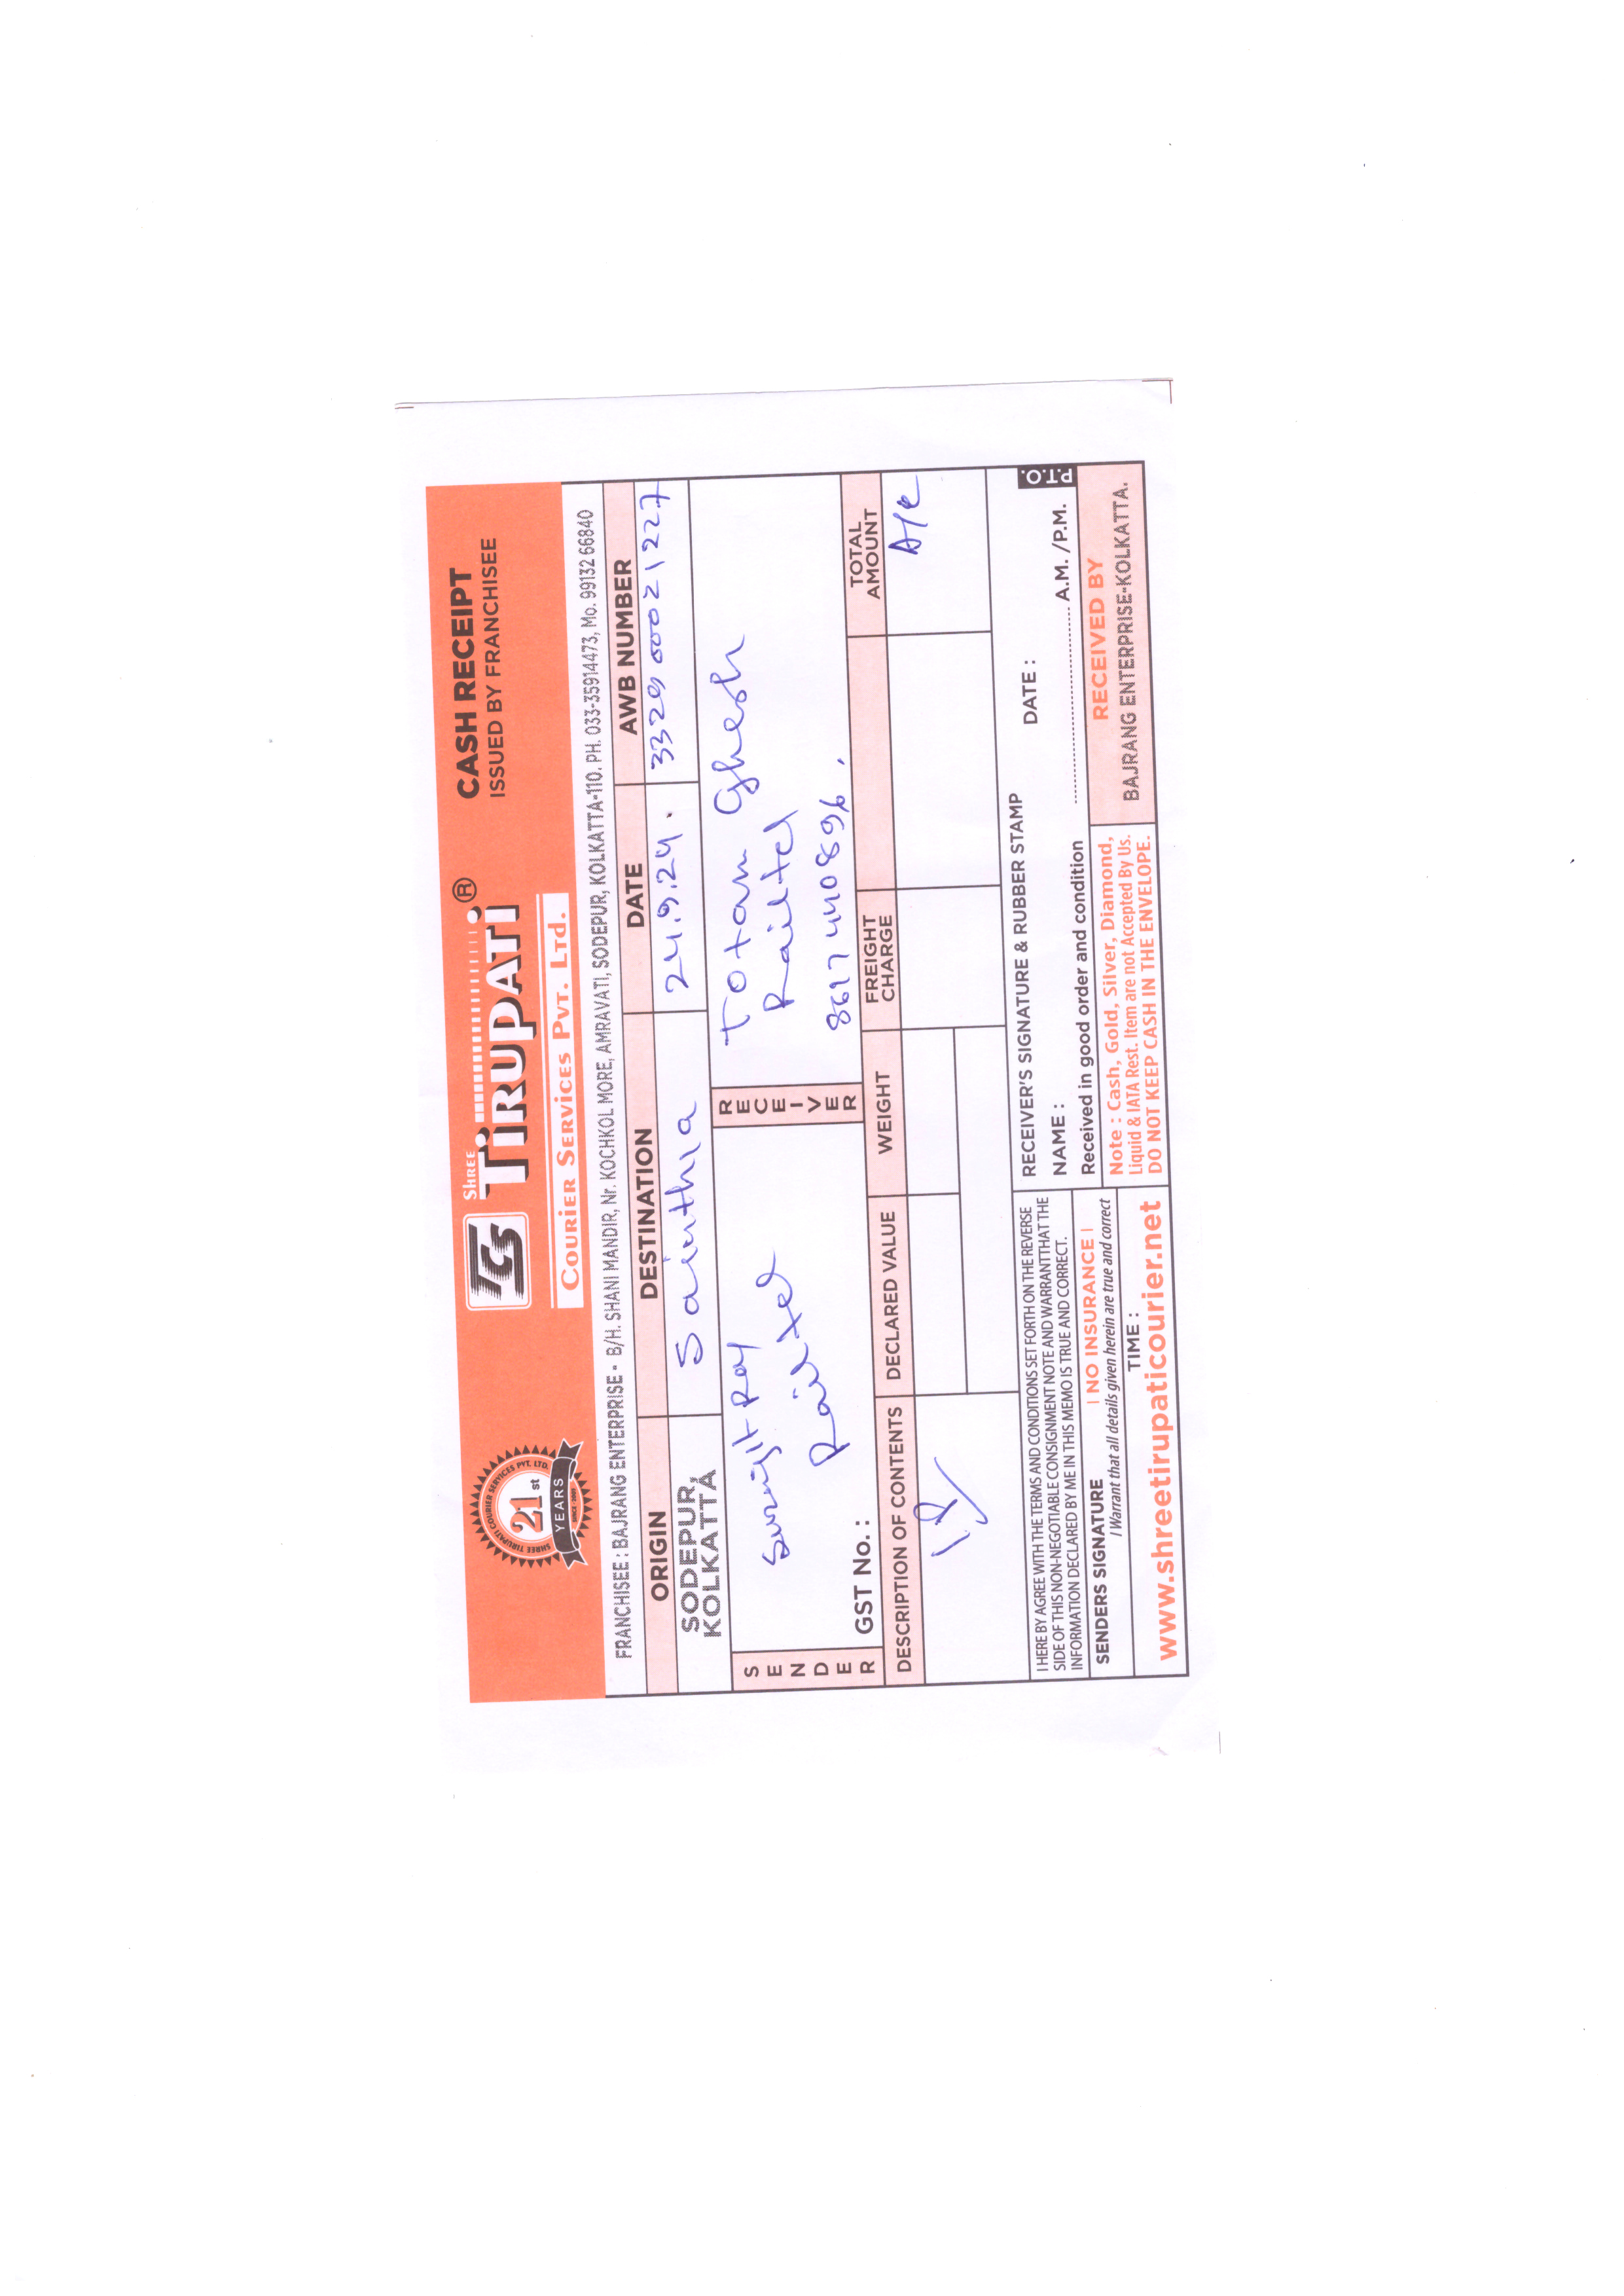 SHREE TIRUPATI COURIER SERVICES PVT. LTD.
21st
YEARS
SINCE - 2000
SHREE
TIRUPATI ®
COURIER SERVICES PVT. LTD.
CASH RECEIPT
ISSUED BY FRANCHISEE
FRANCHISEE : BAJRANG ENTERPRISE - B/H. SHANI MANDIR, Nr. KOCHKOL MORE, AMRAVATI, SODEPUR, KOLKATTA-110. PH. 033-35914473, Mo. 99132 66840
ORIGIN DESTINATION DATE AWB NUMBER
SODEPUR, KOLKATTA Sainthia 24.9.24. 332900021227
SENDER
Surajit Roy
Railtel
GST No. :
RECEIVER
Totan Ghosh
Railtel
8617440896.
DESCRIPTION OF CONTENTS DECLARED VALUE WEIGHT FREIGHT CHARGE TOTAL AMOUNT
A/c
I HERE BY AGREE WITH THE TERMS AND CONDITIONS SET FORTH ON THE REVERSE
SIDE OF THIS NON-NEGOTIABLE CONSIGNMENT NOTE AND WARRANT THAT THE
INFORMATION DECLARED BY ME IN THIS MEMO IS TRUE AND CORRECT.
SENDERS SIGNATURE | NO INSURANCE |
I Warrant that all details given herein are true and correct
TIME :
www.shreetirupaticourier.net
RECEIVER'S SIGNATURE & RUBBER STAMP
P.T.O.
NAME : DATE :
Received in good order and condition A.M. /P.M.
Note : Cash, Gold, Silver, Diamond,
Liquid & IATA Rest. Item are not Accepted By Us.
DO NOT KEEP CASH IN THE ENVELOPE.
RECEIVED BY
BAJRANG ENTERPRISE-KOLKATTA.